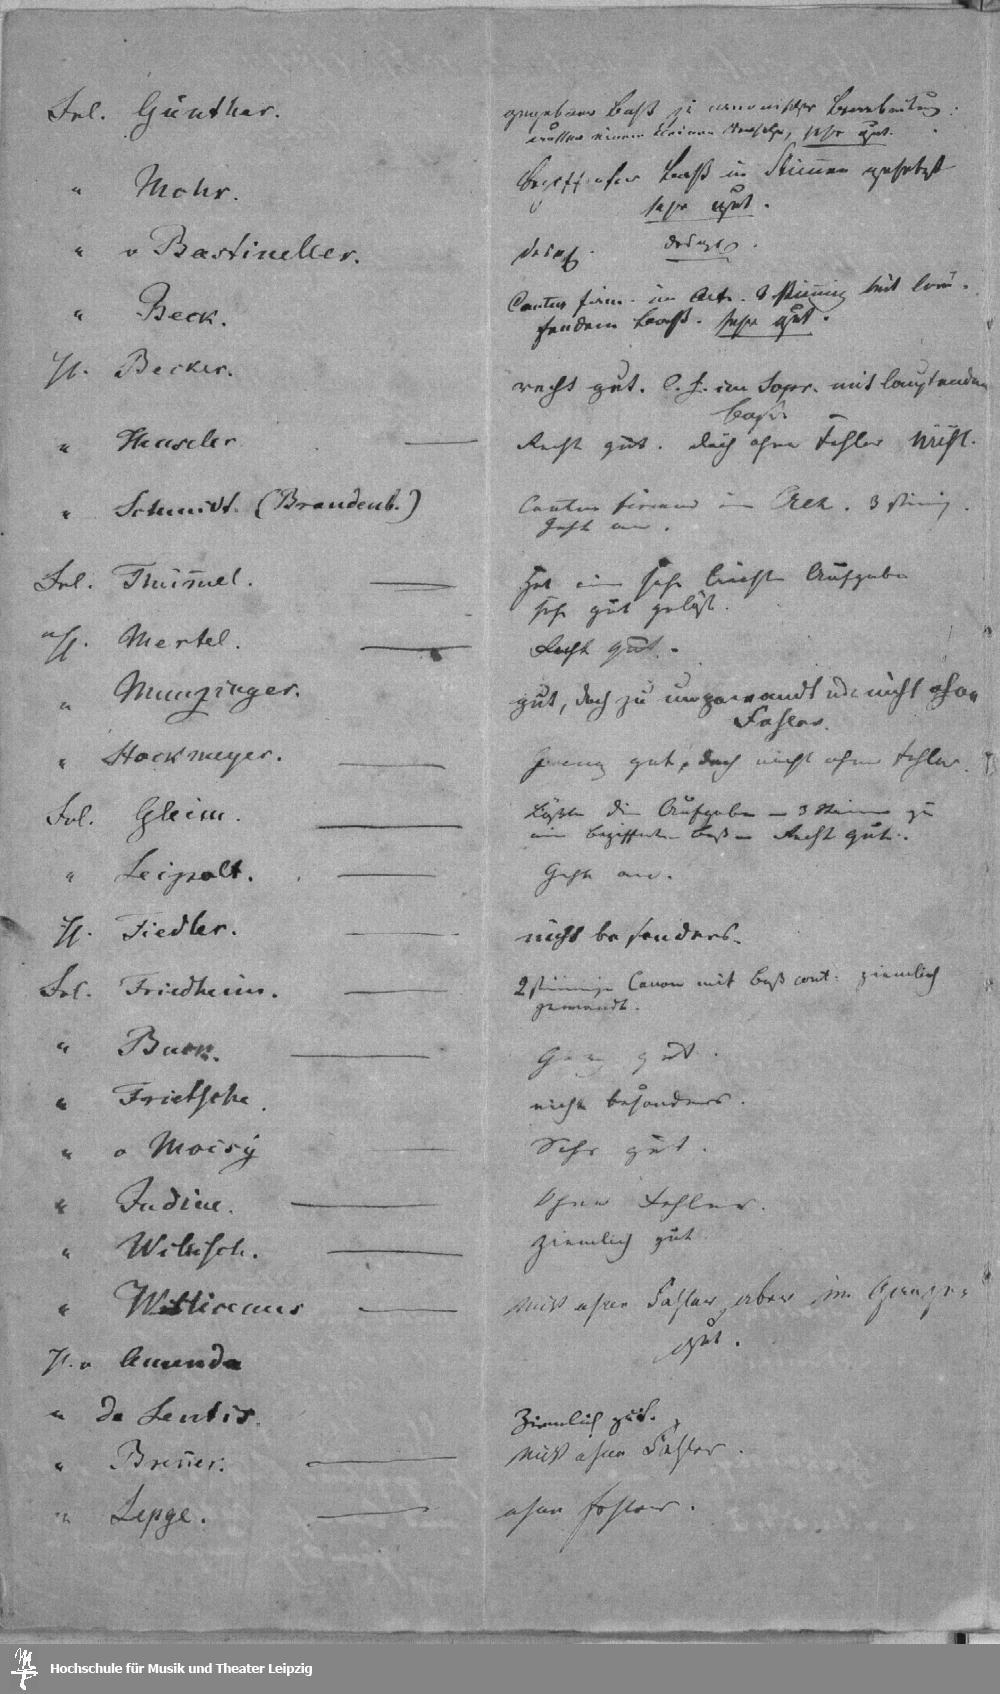 Frl. Günther. gegebener Baß zu canonischer Bearbeitung.
einem kleinen sehr gut.
" Mohr. Bezifferter Baß in Stimmen gesetzt
sehr gut.
" v Bastineller. desgl. desgl.
" Beck. Cantus firm. im Alt. 3 stimig mit lau-
fendem Baß. sehr gut.
H. Becker. recht gut. C. f. im Sopr. mit laufendem
Baß.
" Hensler Recht gut. doch ohne Fehler nicht.
" Schmidt. (Brandenb.) Cantus firmus im 3 stimig.
Geht an.
Frl. Thümmel. Hat eine sehr leichte Aufgabe
sehr gut gelöst.
H. Mertel. Recht gut.
" Munzinger. gut, doch zu ungewandt und nicht ohne
Fehler.
" Stockmeyer. Genug gut, doch nicht ohne Fehler.
Frl. Gleim. Lößte die Aufgabe – 3 Stimmen zu
ein bezifferten Baß – Recht gut.
" Leipolt. Geht an.
H. Fiedler. nicht besonders.
Frl. Friedheim. 2 stimmige Canon mit Baß cont. ziemlich
gewandt.
" Buck. Ganz gut.
" Frietsche nicht besonders.
" v Moisÿ Sehr gut.
" Judine. Ohne Fehler.
" Wilsch. ziemlich gut
" nicht ohne Fehler, aber im Ganzen
gut.
H. v Amenda
" de Sentis. Ziemlich gut.
" Breñer. nicht ohne Fehler.
" Lepge. ohne Fehler.
Hochschule für Musik und Theater Leipzig